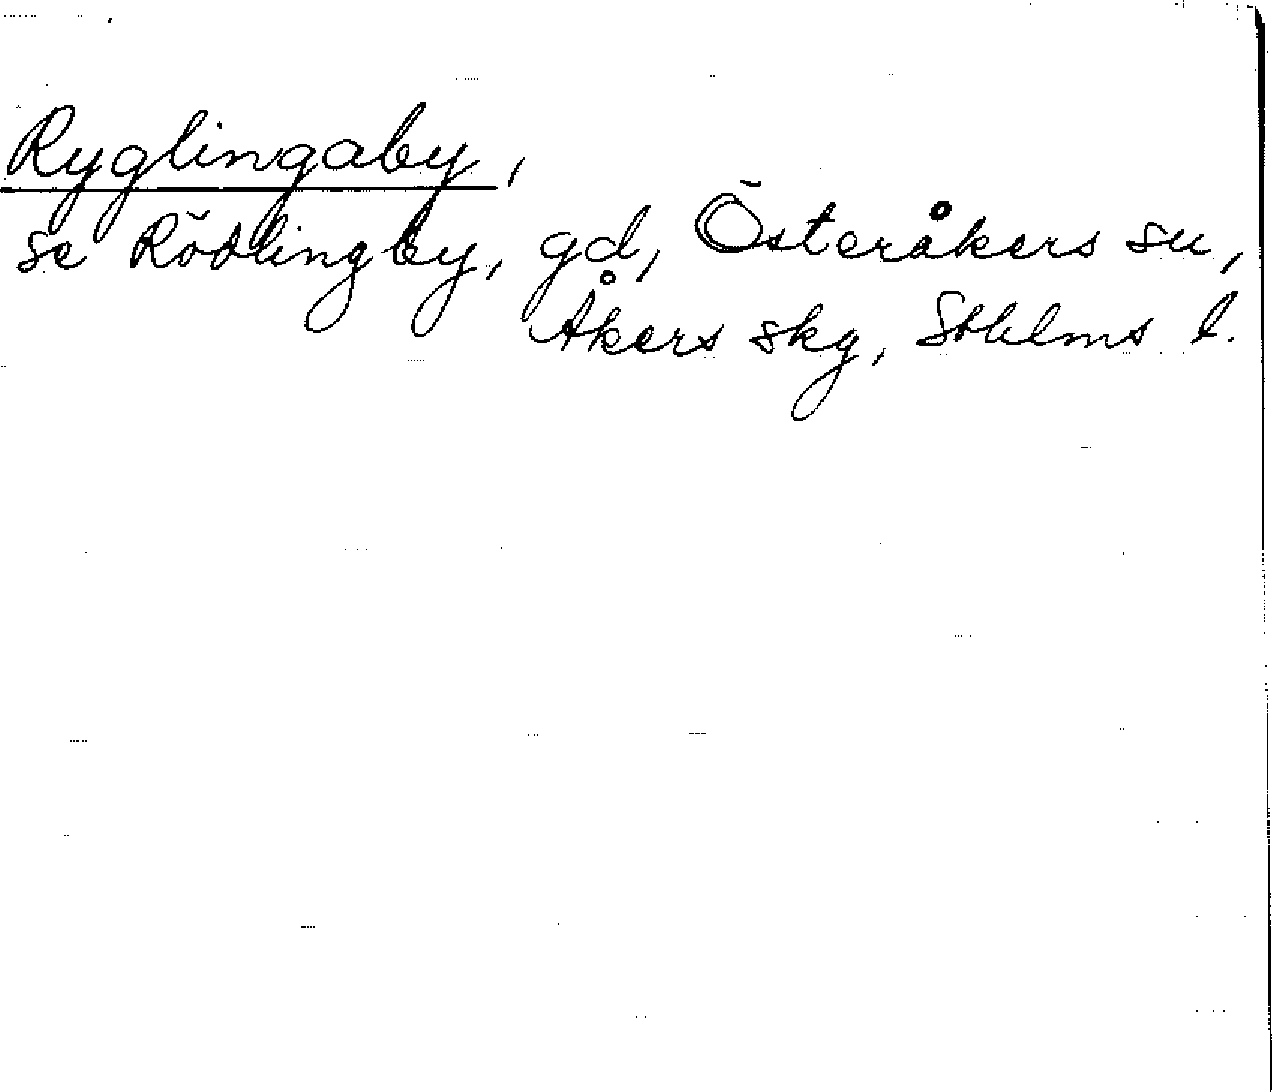 Ryglingaby,
se Rödlingby, gd, Österåkers sn,
Åkers skg, Sthlms l.